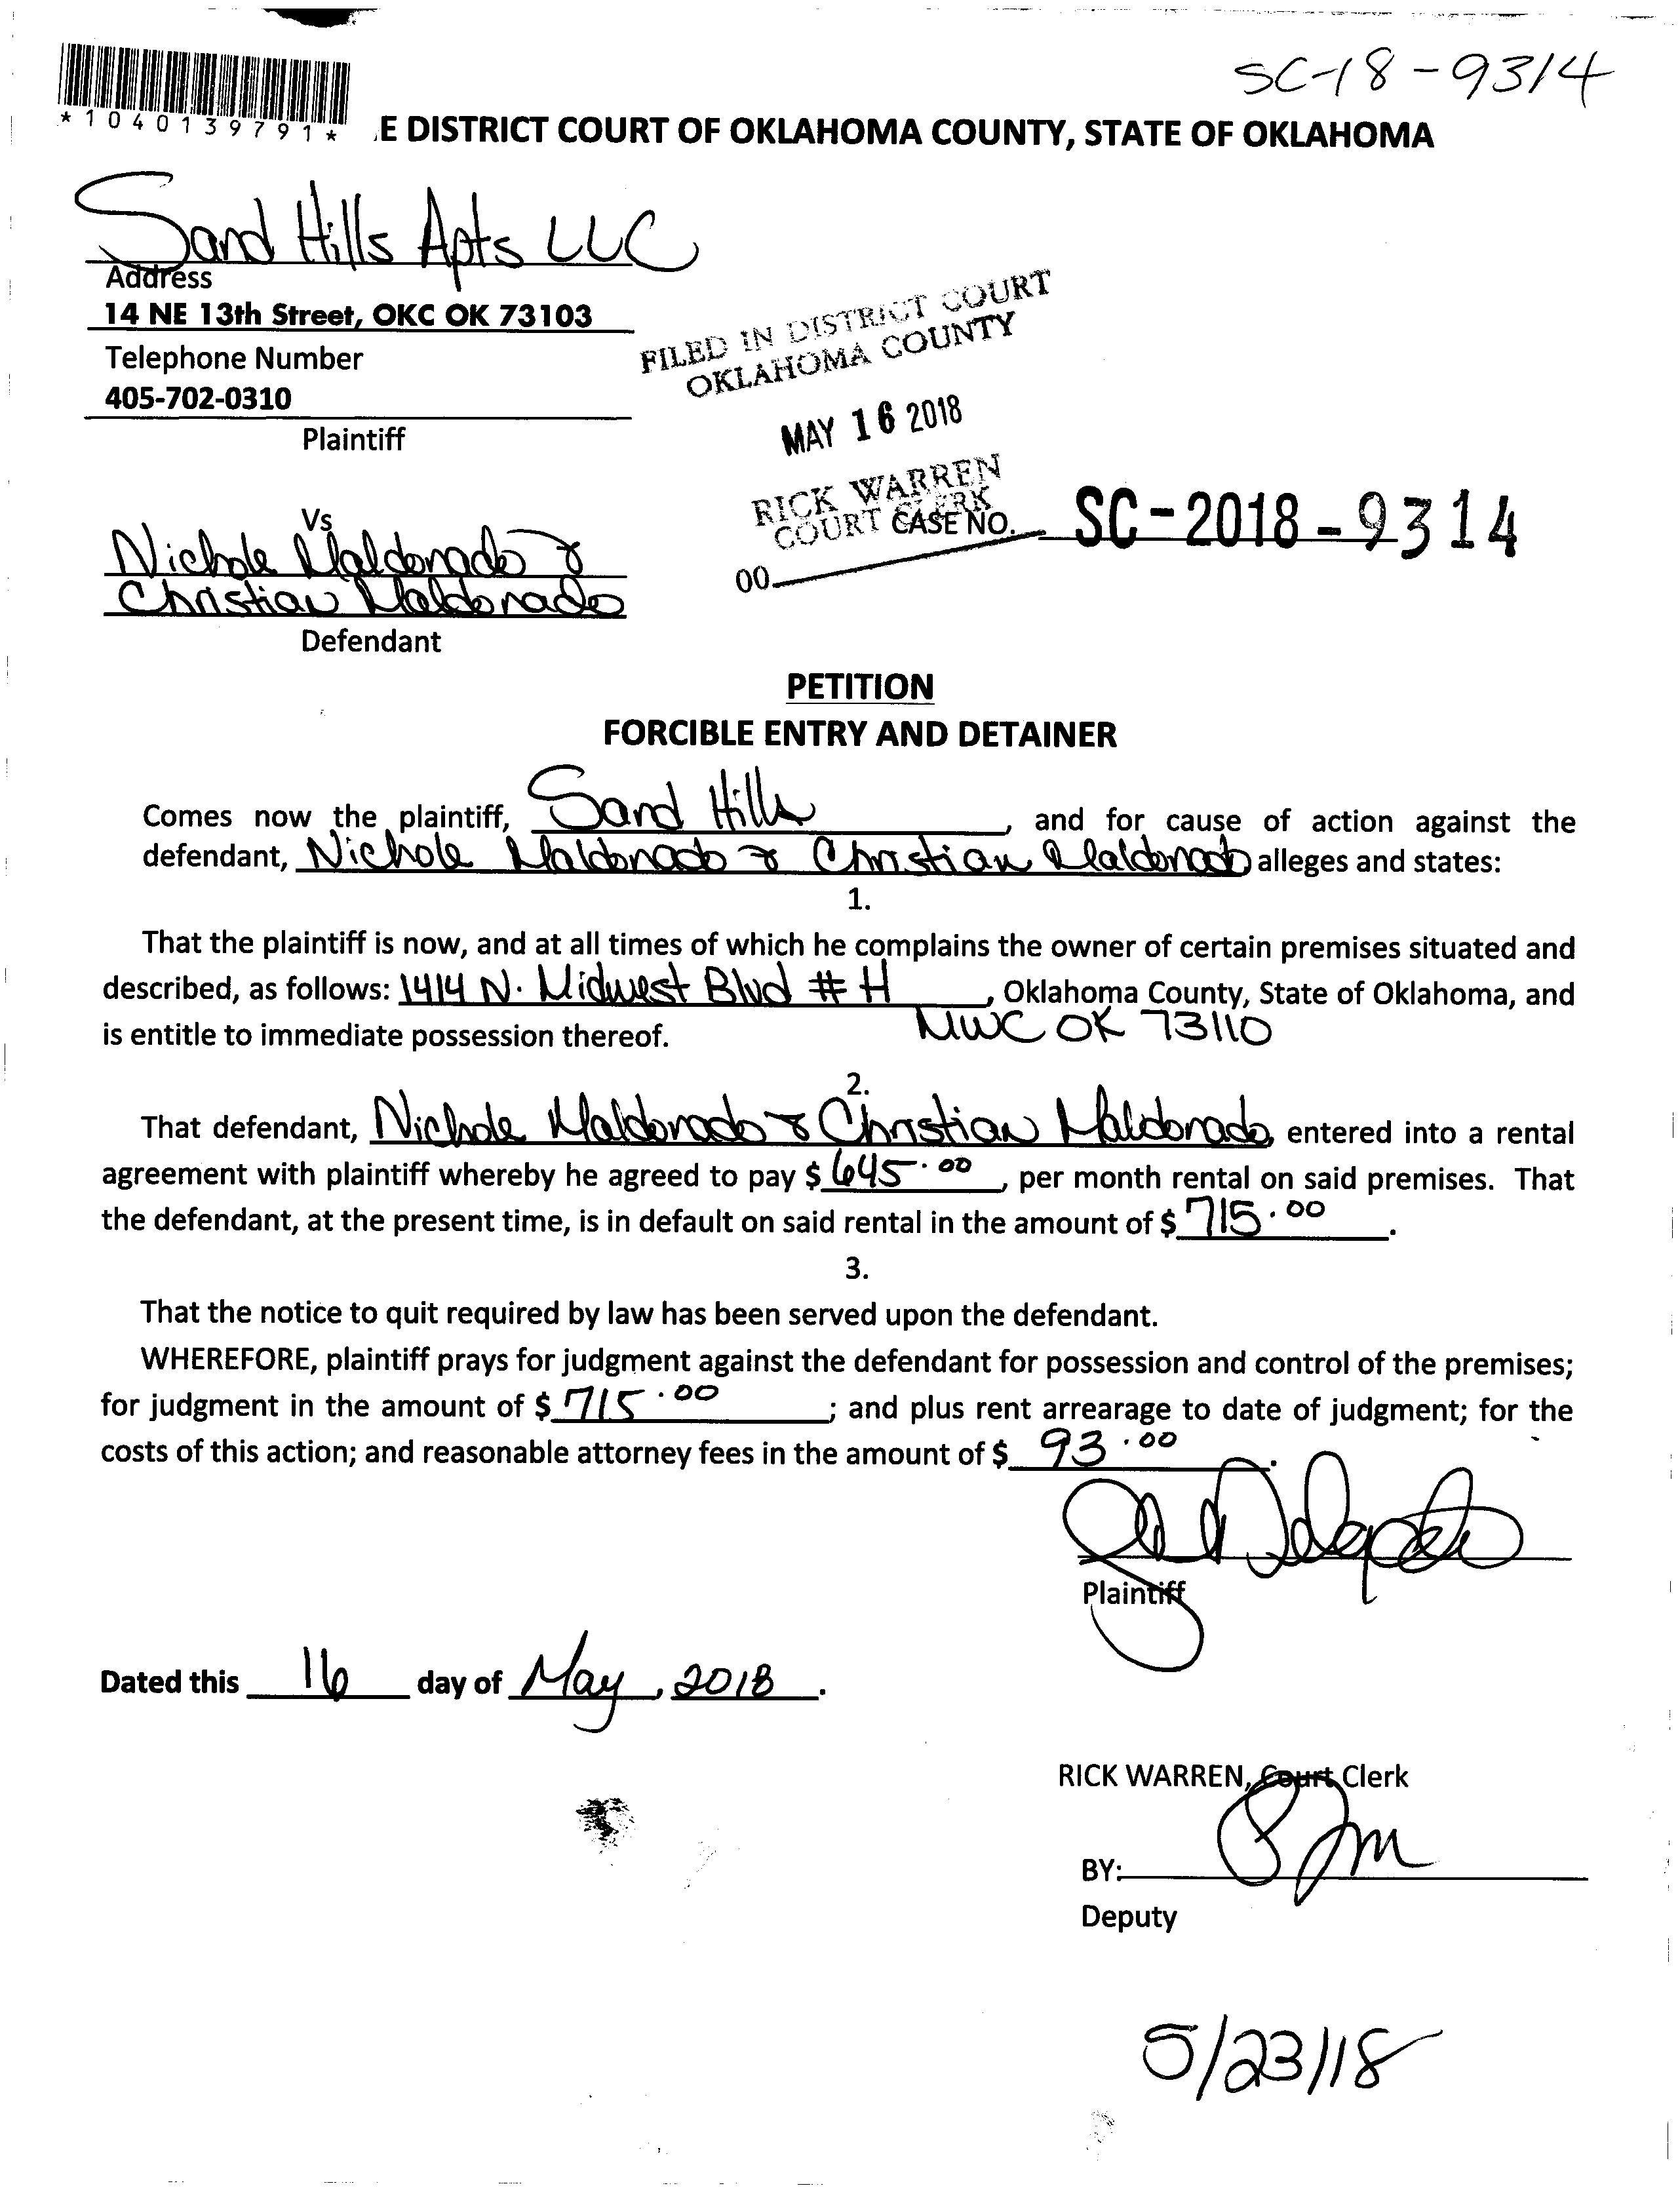 SC-18-9314
*1040139791*
E DISTRICT COURT OF OKLAHOMA COUNTY, STATE OF OKLAHOMA
Sand Hills Apts LLC
Address
14 NE 13th Street, OKC OK 73103
Telephone Number
405-702-0310
Plaintiff
FILED IN DISTRICT COURT
OKLAHOMA COUNTY
MAY 16 2018
RICK WARREN
COURT CLERK
00
CASE NO. SC-2018-9314
Vs
Nichole Maldonado &
Christian Maldonado
Defendant
PETITION
FORCIBLE ENTRY AND DETAINER
Comes now the plaintiff, Sand Hills, and for cause of action against the
defendant, Nichole Maldonado & Christian Maldonado alleges and states:
1.
That the plaintiff is now, and at all times of which he complains the owner of certain premises situated and
described, as follows: 1414 N. Midwest Blvd # H, Oklahoma County, State of Oklahoma, and
MWC OK 73110
is entitle to immediate possession thereof.
2.
That defendant, Nichole Maldonado & Christian Maldonado, entered into a rental
agreement with plaintiff whereby he agreed to pay $ 645.00, per month rental on said premises. That
the defendant, at the present time, is in default on said rental in the amount of $ 715.00.
3.
That the notice to quit required by law has been served upon the defendant.
WHEREFORE, plaintiff prays for judgment against the defendant for possession and control of the premises;
for judgment in the amount of $ 715.00; and plus rent arrearage to date of judgment; for the
costs of this action; and reasonable attorney fees in the amount of $ 93.00.
Plaintiff
Dated this 16 day of May, 2018.
RICK WARREN, Court Clerk
BY:
Deputy
5/23/18